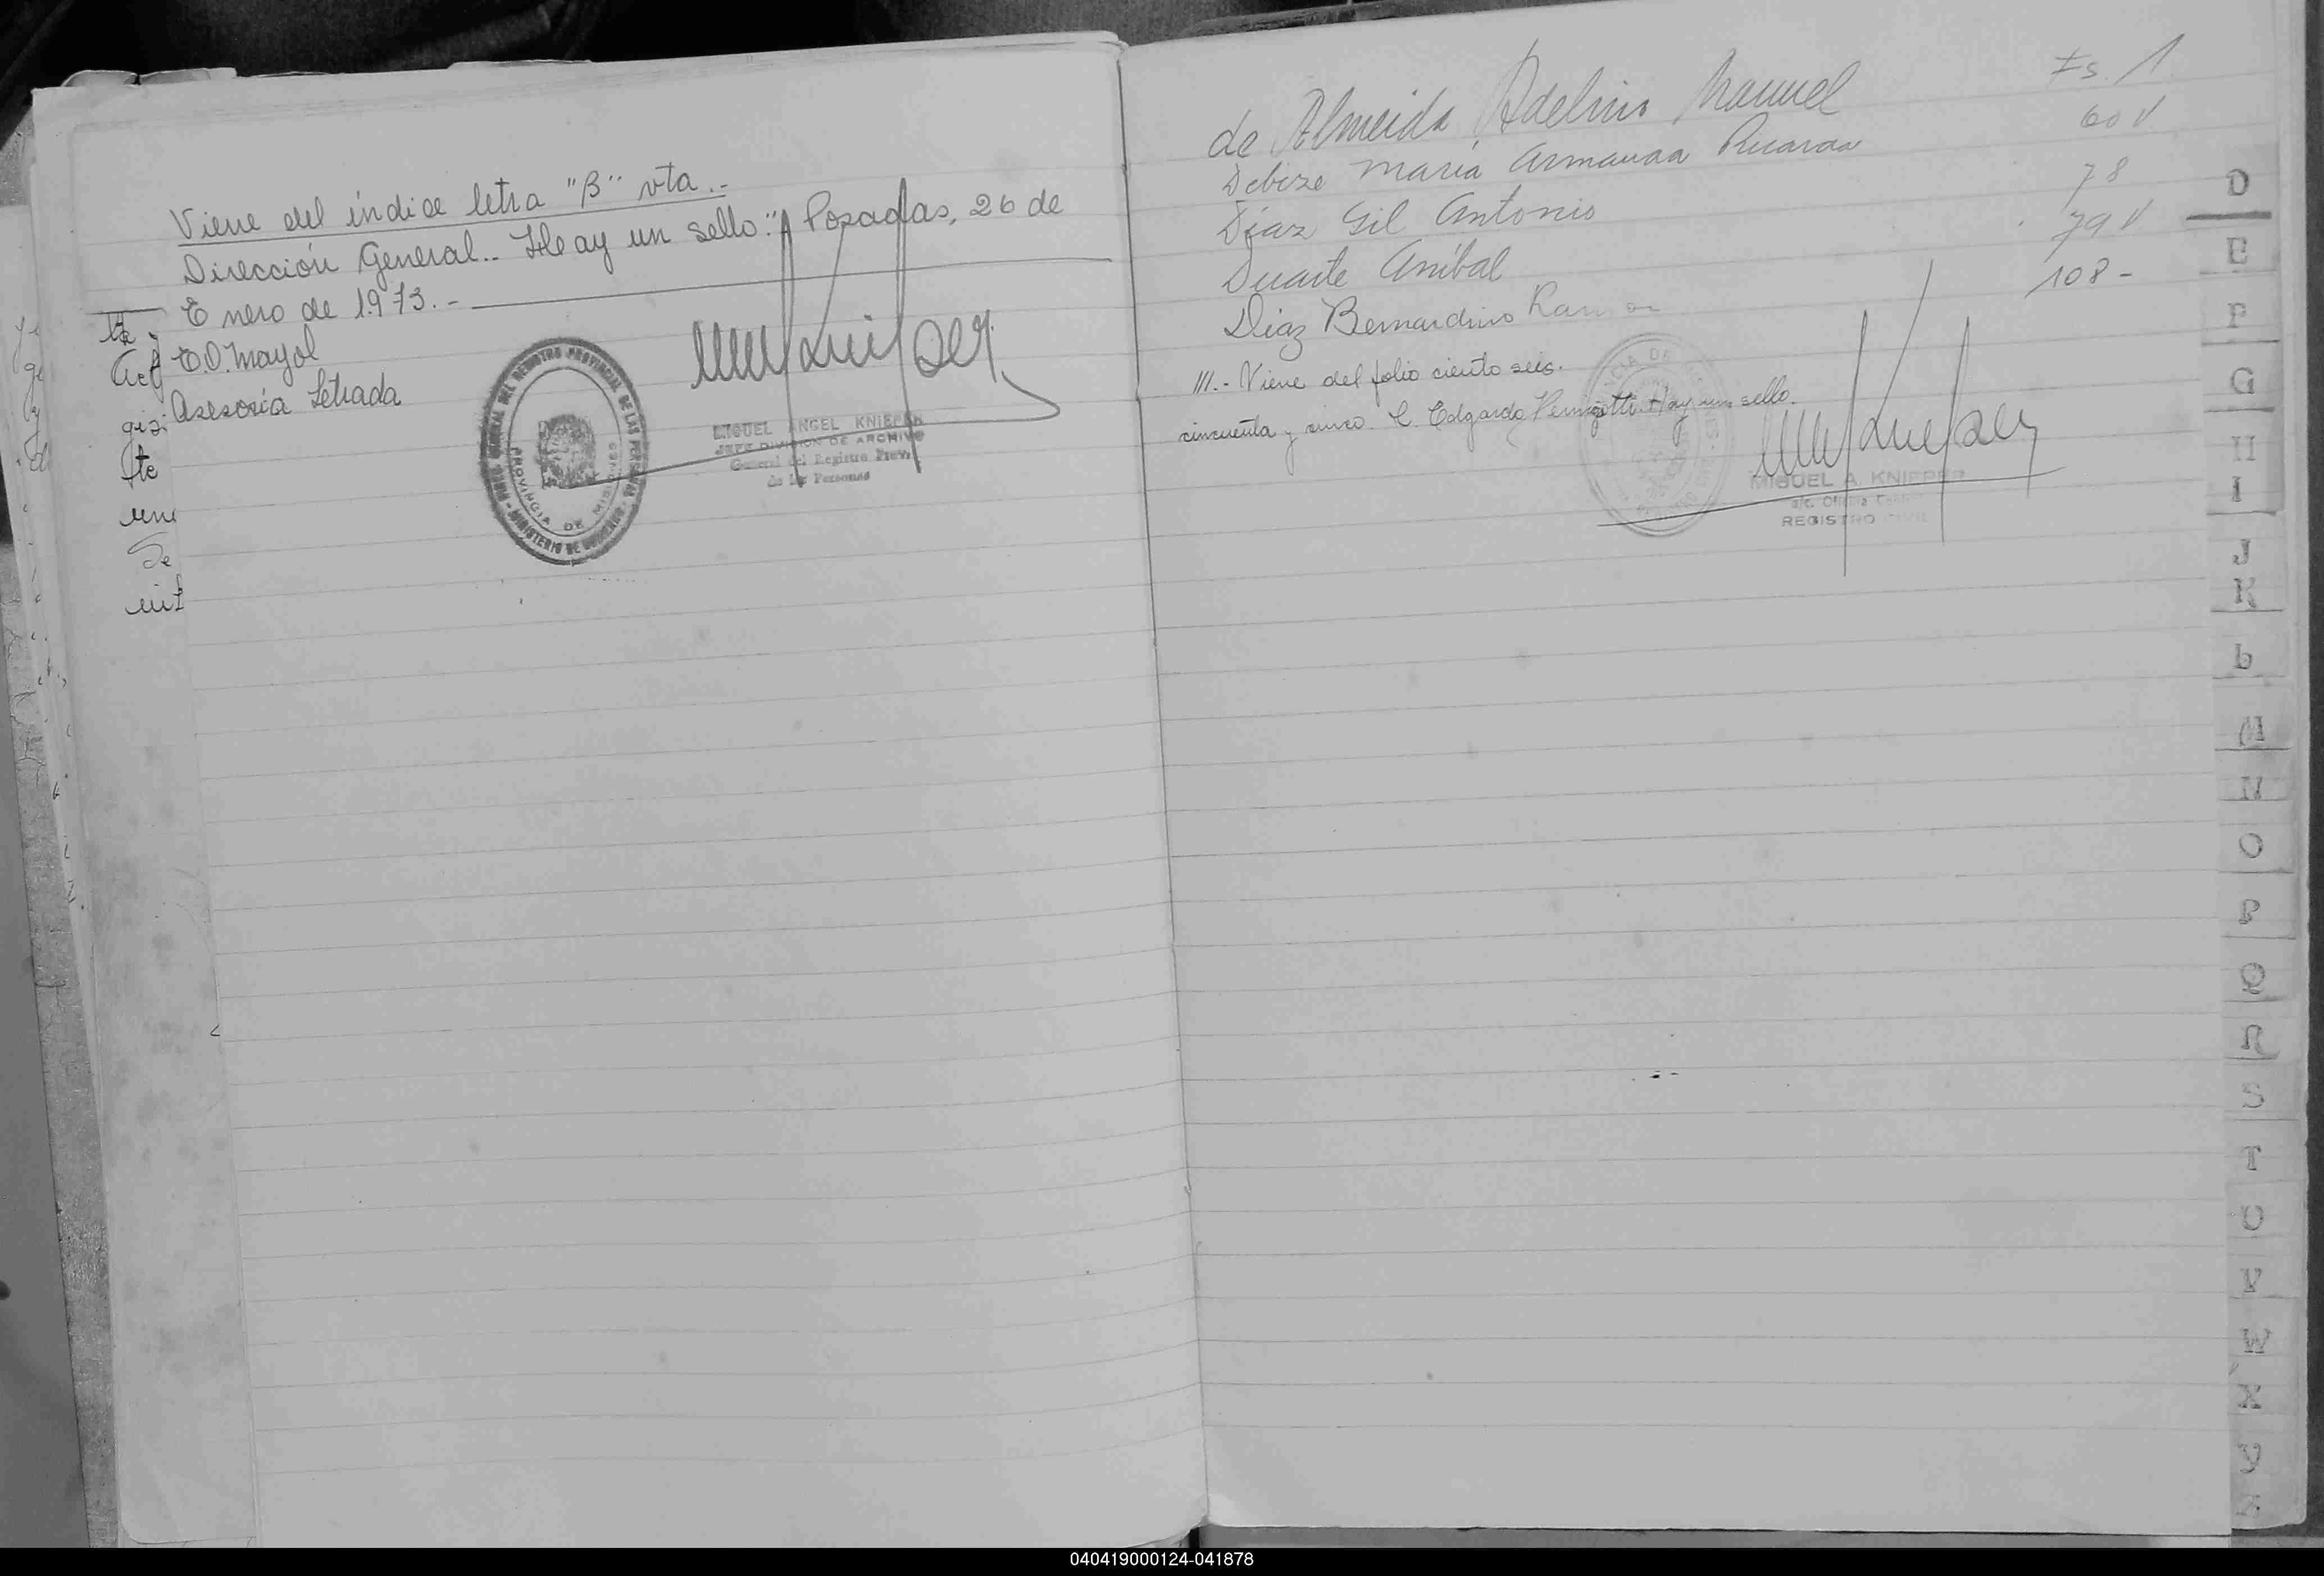 Viene del índice letra "B" vta.-
Dirección General.. Hay un sello:" Posadas, 26 de
Enero de 1973.-
E.O. Mayol
Asesoría Letrada
DIR. GENERAL DEL REGISTRO PROVINCIAL DE LAS PERSONAS - MINISTERIO DE GOBIERNO
PROVINCIA DE MISIONES
MIGUEL ANGEL KNIEPER
JEFE DIVISION DE ARCHIVO
General del Registro Prov.
de las Personas
de Almeida Adelino Manuel Fs. 1
Debize María Armanda Ricarda 60 V
Díaz Gil Antonio 78
Duarte Aníbal 79 V
Díaz Bernardino Ramon 108-
///.- Viene del folio ciento seis.
cincuenta y cinco. C. Edgardo Pernigotti. Hay un sello.
MIGUEL A. KNIEPER
a/c. Oficina
REGISTRO CIVIL
D
E
F
G
H
I
J
K
L
M
N
O
P
Q
R
S
T
U
V
W
X
Y
Z
040419000124-041878